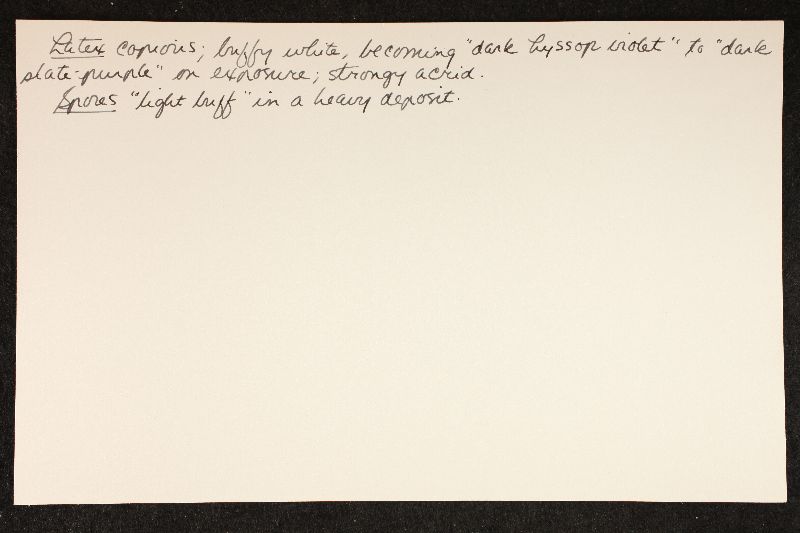 Latex copious; buffy white, becoming "dark hyssop violet" to "dark
slate-purple" on exposure; strongy acrid.
Spores "light buff" in a heavy deposit.